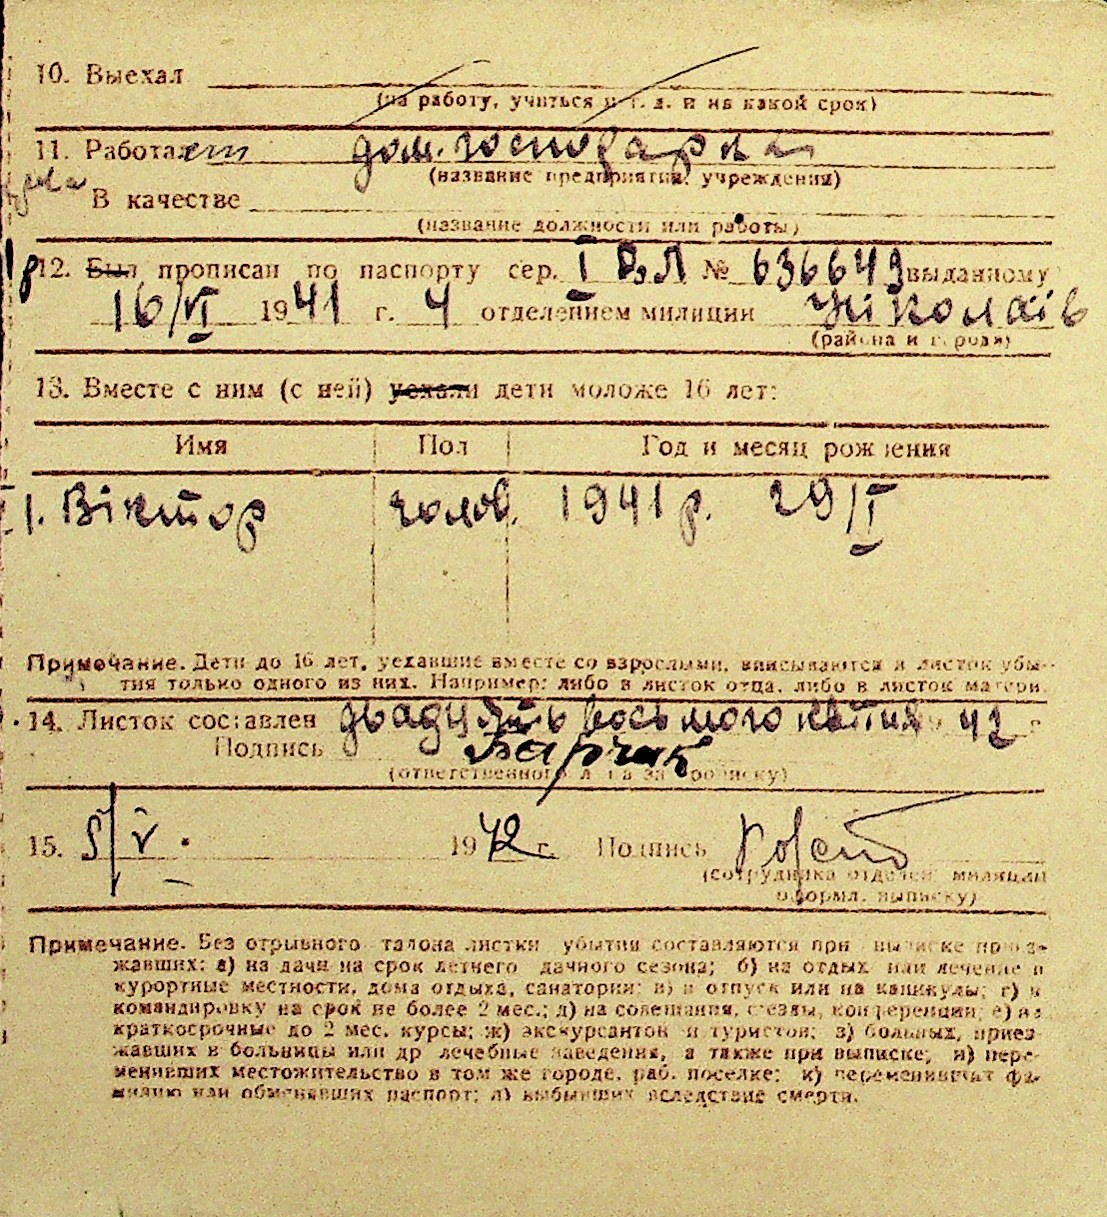 10. Выехал
(на работу, учиться и т. д. и на какой срок)
11. Работает дом. господарка
(название предприятия, учреждения)
В качестве
(название должности или работы)
12. Был прописан по паспорту сер. І ВЛ № 636643 выданному
16/VI 1941 г. 4 отделением милиции Ніколаїв
(района и города)
13. Вместе с ним (с ней) уехали дети моложе 16 лет:
Имя Пол Год и месяц рождения
1. Віктор чолов. 1941 р. 29/I
Примечание. Дети до 16 лет, уехавшие вместе со взрослыми, вписываются в листок убы-
тия только одного из них. Например: либо в листок отца, либо в листок матери.
14. Листок составлен двадцять восьмого квітня 1942 г.
Подпись
(ответственного лица за прописку)
15. 5/V. 1942 г. Подпись
(сотрудника отделен. милиции
оформл. выписку)
Примечание. Без отрывного талона листки убытия составляются при выписке проез-
жавших: а) на дачи на срок летнего дачного сезона; б) на отдых или лечение в
курортные местности, дома отдыха, санатории; в) в отпуск или на каникулы; г) в
командировку на срок не более 2 мес.; д) на совещания, съезды, конференции; е) на
краткосрочные до 2 мес. курсы; ж) экскурсантов и туристов; з) больных, приез-
жавших в больницы или др лечебные заведения, а также при выписке; и) пере-
менивших местожительство в том же городе, раб. поселке; к) переменивших фа-
милию или обменявших паспорт; л) выбывших вследствие смерти.